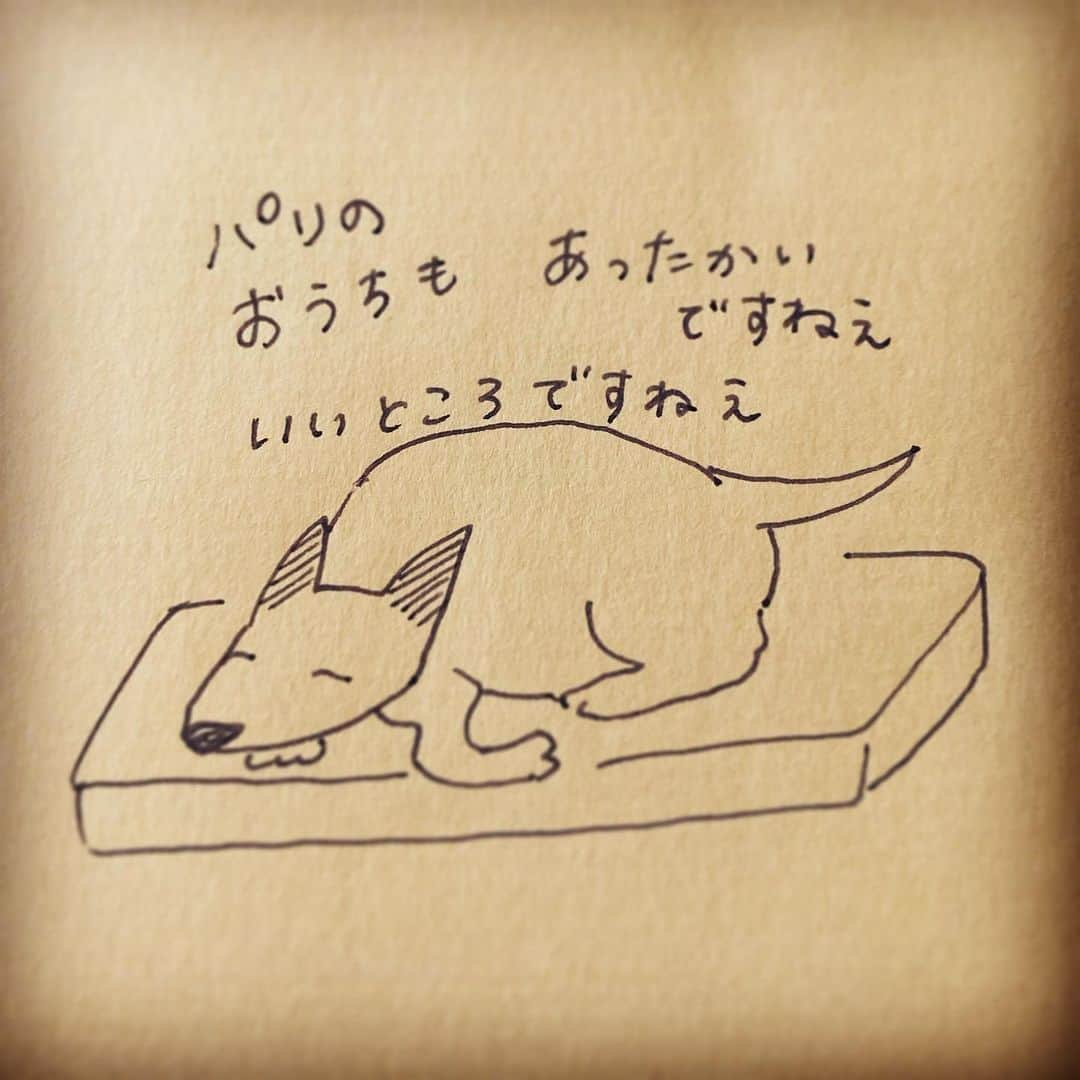 パリの
おうちも
あったかい
ですねえ
いいところですねえ